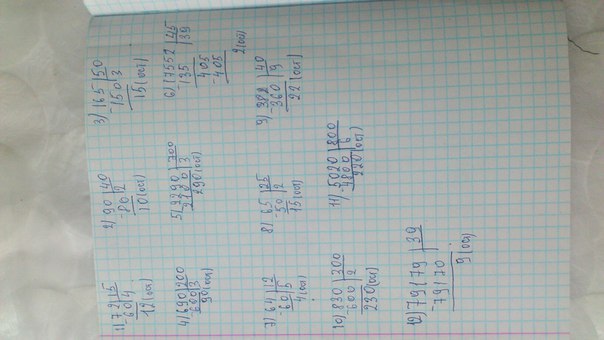 1) 72 | 15
-60 | 4
12 (ост)
2) 90 | 40
-80 | 2
10 (ост)
3) 165 | 50
-150 | 3
15 (ост)
4) 690 | 200
600 | 3
90 (ост)
5) 3290 | 700
2100 | 3
290 (ост)
6) 17552 | 45
-135 | 39
405
-405
2 (ост)
7) 64 | 12
-60 | 5
4 (ост)
8) 65 | 25
-50 | 2
15 (ост)
9) 382 | 40
-360 | 9
22 (ост)
10) 830 | 300
600 | 2
230 (ост)
11) 5020 | 800
-4800 | 6
220 (ост)
12) 79179 | 39
-79170
9 (ост)